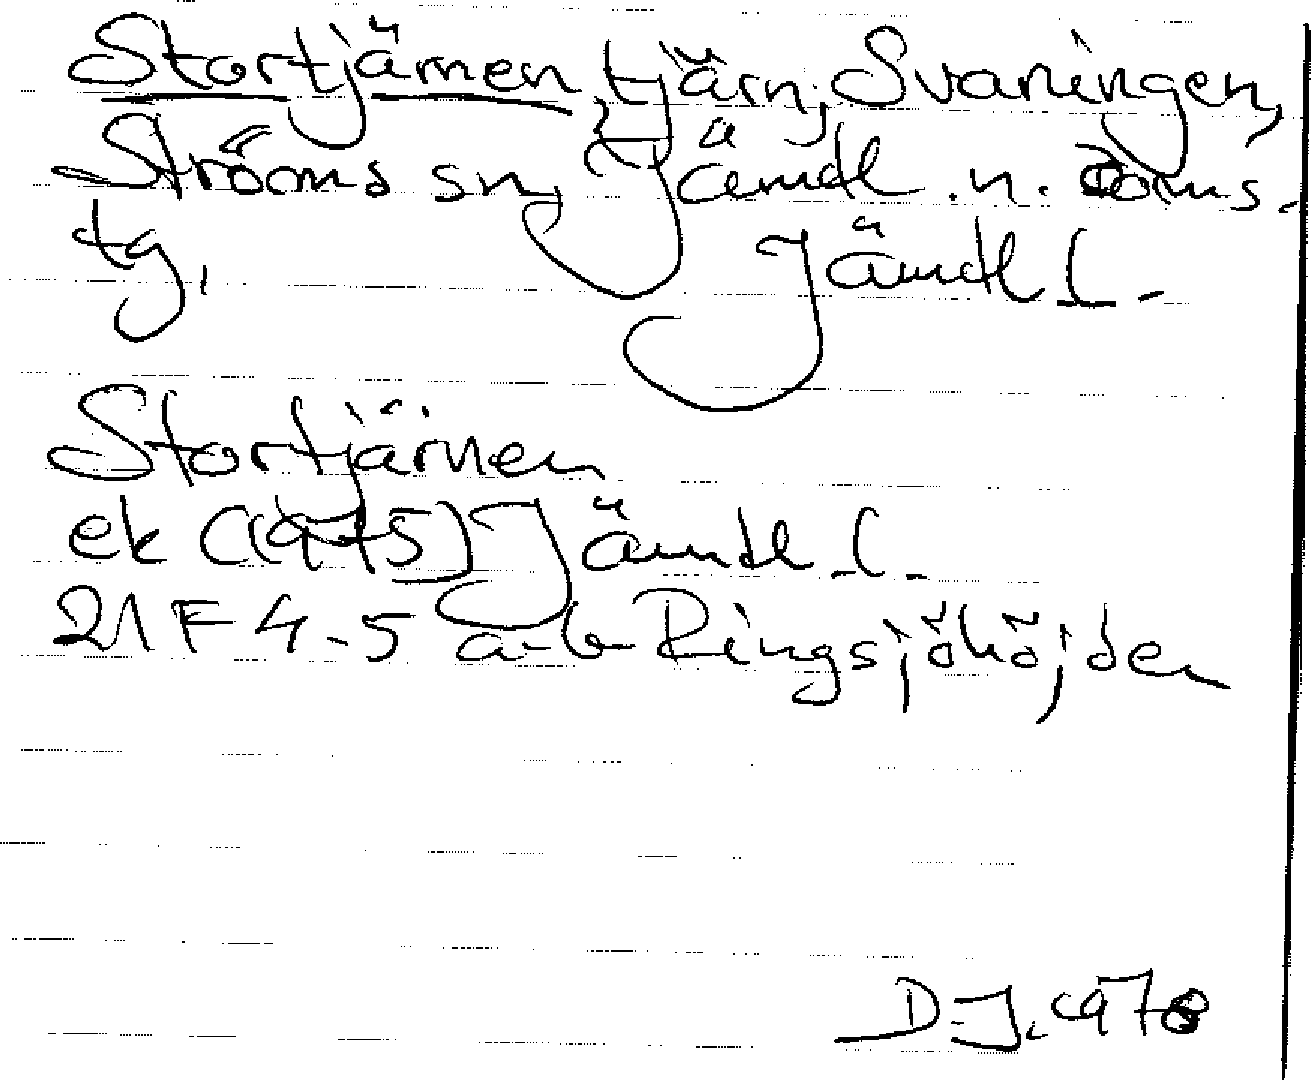 Stortjärnen, tjärn, Svaningen,
Ströms sn, Jämtl. n. doms-
tg, Jämtl l.
Stortjärnen
ek (1975) Jämtl l.
21F 4-5 a-b Ringsjöhöjden
D.J. 1978